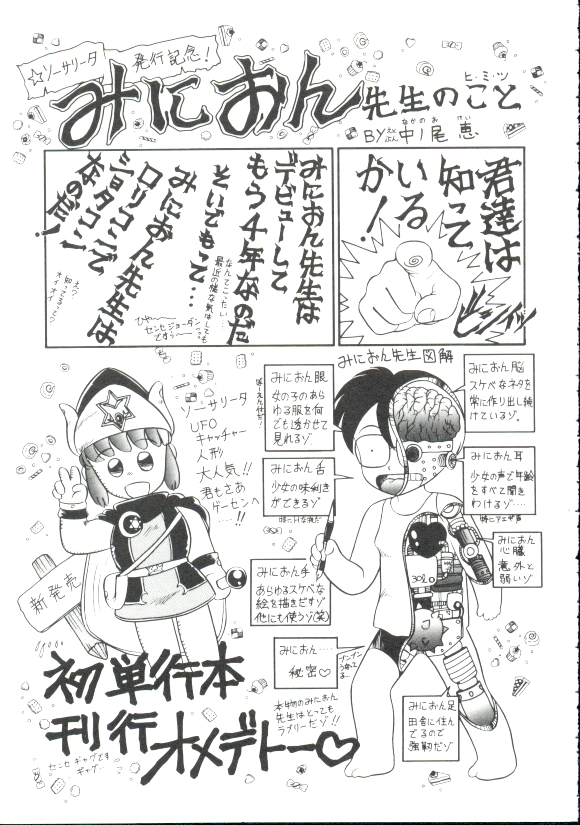 ☆ソーサリータ
発行記念!
みにおん先生のこと
ヒ・ミ・ツ
BY えぶん 中ノ尾 恵
なかのお けい
君達は
知って
いる
か!
ビシィッ
みにおん先生は
デビューして
もう4年なのだ
なんてこったい…
最近の様な気はしても
そいでもって…
みにおん先生は
ロリコンで
ショタコン
なのだ!
ひゃ〜〜
センセジョーダン
ですぅ〜〜
えっ
知ってるって?
オイオイ
みにおん先生図解
みにおん眼
女の子のあら
ゆる服を何
でも透かせて
見れるゾ.
みにおん脳
スケベなネタを
常に作り出し続
けているゾ.
みにおん舌
少女の味利き
ができるゾ
みにおん耳
少女の声で年齢
をすべて聞き
わけるゾ…
特にアエギ声
みにおん手
あらゆるスケベな
絵を描きだすゾ
他にも使うゾ(笑)
みにおん
心臓
意外と
弱いゾ
みにおん…
秘密♡
みにおん足
田舎に住ん
でるので
強靭だゾ
本物のみにおん
先生はとっても
ラブリーだゾ!!
ソーサリータ
UFO
キャッチャー
人形
大人気!!
君もさあ
ゲーセンへ
…!!
新発売
初単行本
刊行オメデトー♡
センセギャグです
ギャグ…